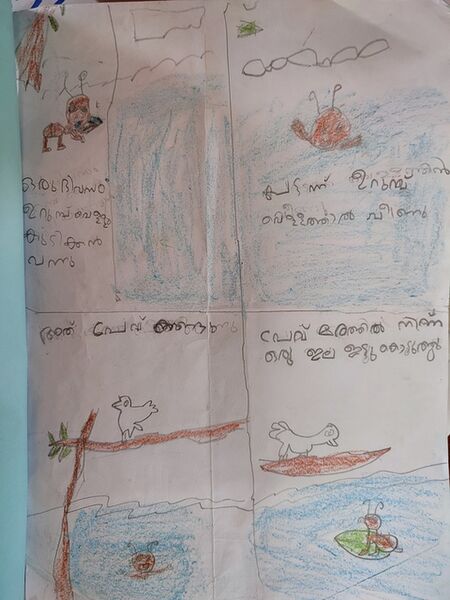 ഒരു ദിവസം
ഉറുമ്പ് വെള്ളം
കുടിക്കൻ
വന്നു
പെടന്ന് ഉറുമ്പ്
വെള്ളത്തിൽ വീണു
അത് പ്രേവ്
പ്രേവ് മരത്തിൽ നിന്ന്
ഒരു ഇല ഇട്ടു കൊടുത്തു